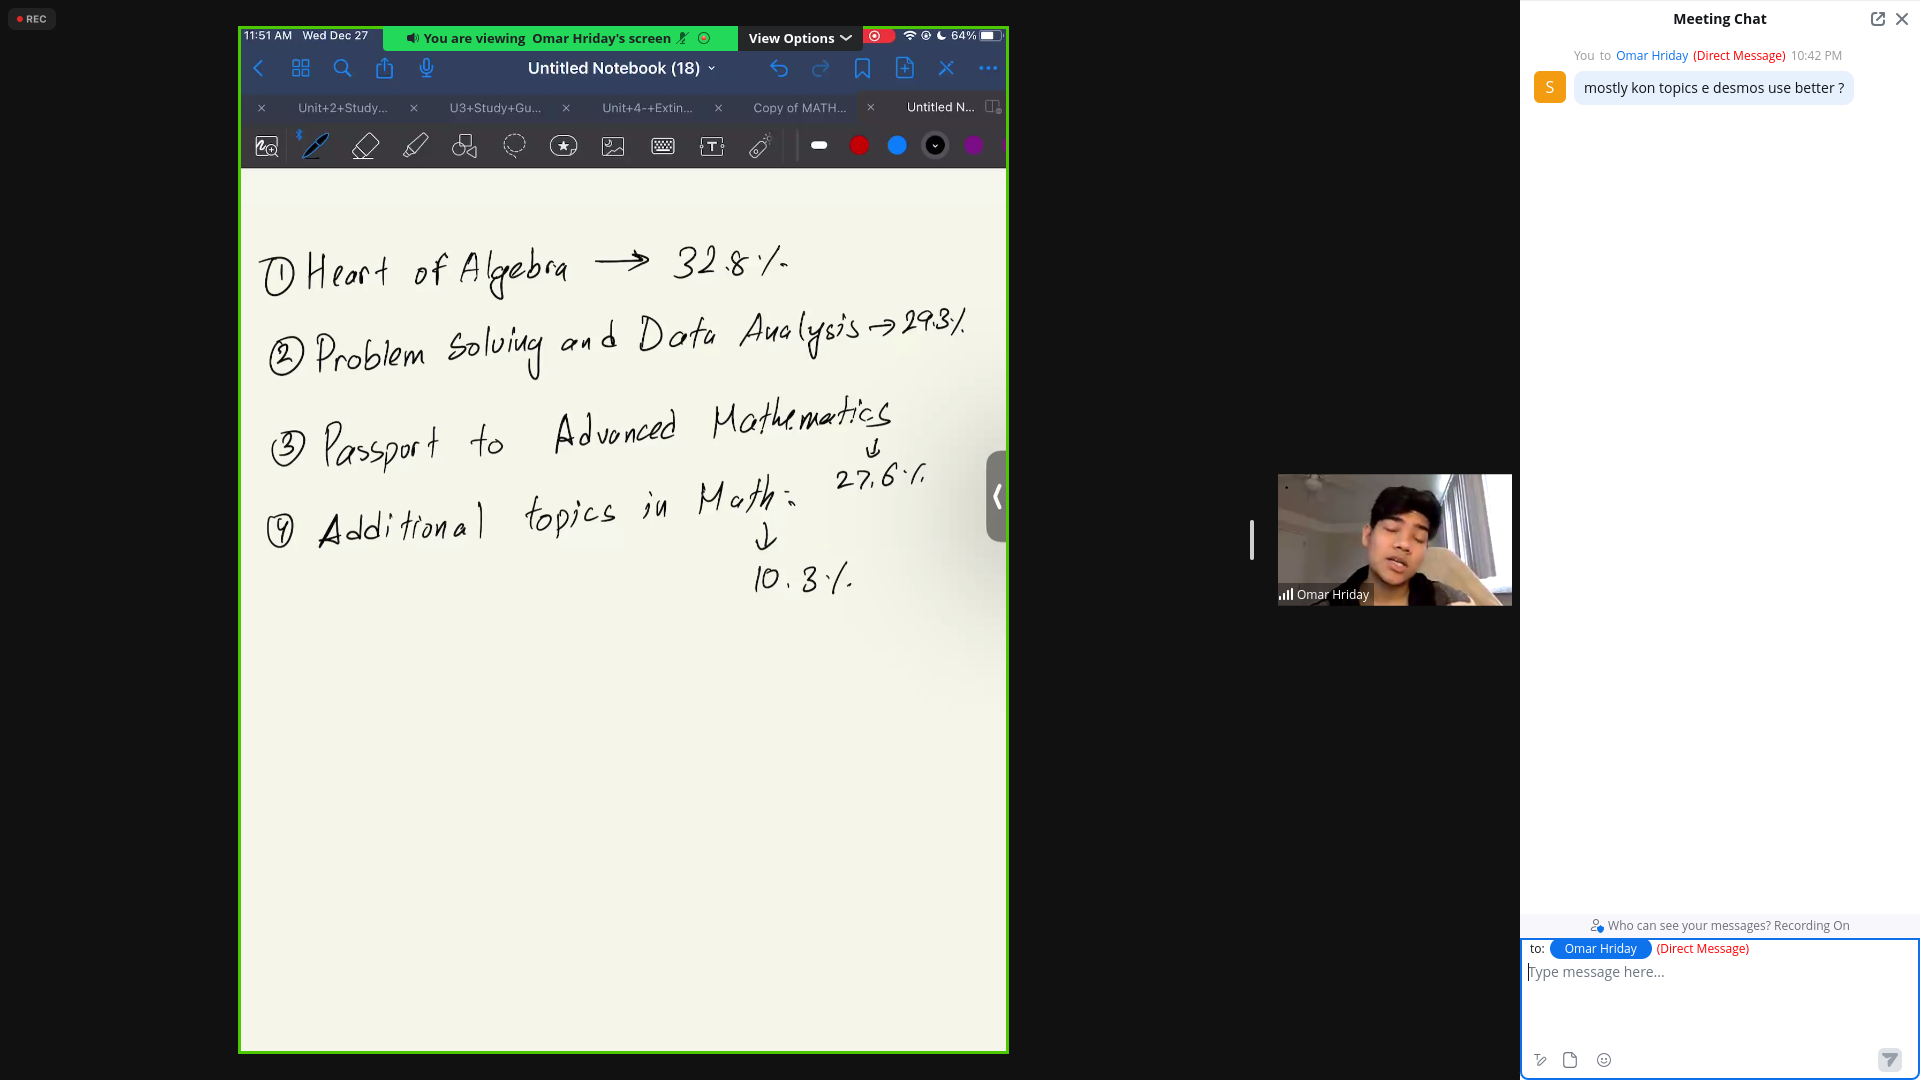 REC
11:51 AM Wed Dec 27
You are viewing Omar Hriday's screen
View Options
64%
Untitled Notebook (18)
Unit+2+Study...
U3+Study+Gu...
Unit+4-+Extin...
Copy of MATH...
Untitled N...
① Heart of Algebra → 32.8%
② Problem Solving and Data Analysis → 29.3%
③ Passport to Advanced Mathematics
↓
27.6%
④ Additional topics in Math:
↓
10.3%
Omar Hriday
Meeting Chat
You to Omar Hriday (Direct Message) 10:42 PM
S
mostly kon topics e desmos use better ?
Who can see your messages? Recording On
to: Omar Hriday (Direct Message)
Type message here...